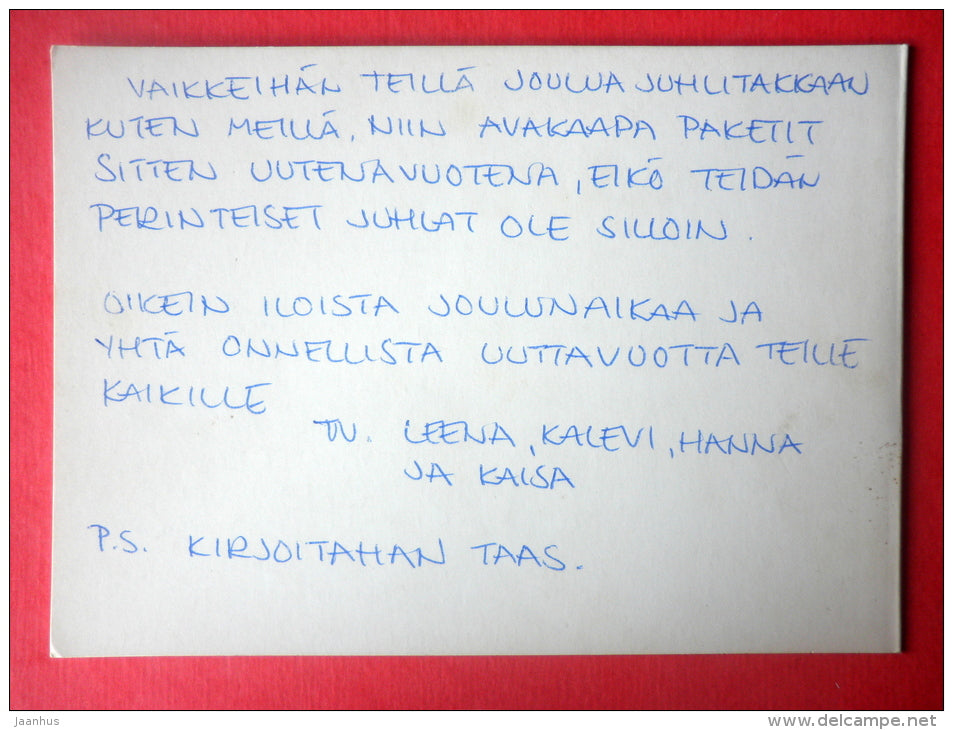 VAIKKEIHÄN TEILLÄ JOULUA JUHLITAKKAAN
KUTEN MEILLÄ, NIIN AVAKAAPA PAKETIT
SITTEN UUTENAVUOTENA, EIKÖ TEIDÄN
PERINTEISET JUHLAT OLE SILLOIN.
OIKEIN ILOISTA JOULUNAIKAA JA
YHTÄ ONNELLISTA UUTTAVUOTTA TEILLE
KAIKILLE
TV. LEENA, KALEVI, HANNA
JA KAISA
P.S. KIRJOITAHAN TAAS.
Jaanhus
www.delcampe.net